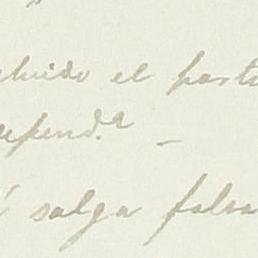 cluido el parti
epend.ª —
salga falsa